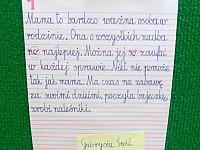 Mama to bardzo ważna osoba w
rodzinie. Ona o wszystkich zadba
na najlepiej. Można jej zaufać
w każdej sprawie. Nikt nie pomoże
tak jak mama. Ma czas na zabawę
ze swoimi dziećmi, poczyta bajeczki,
zrobi naleśniki.
Gabrysia